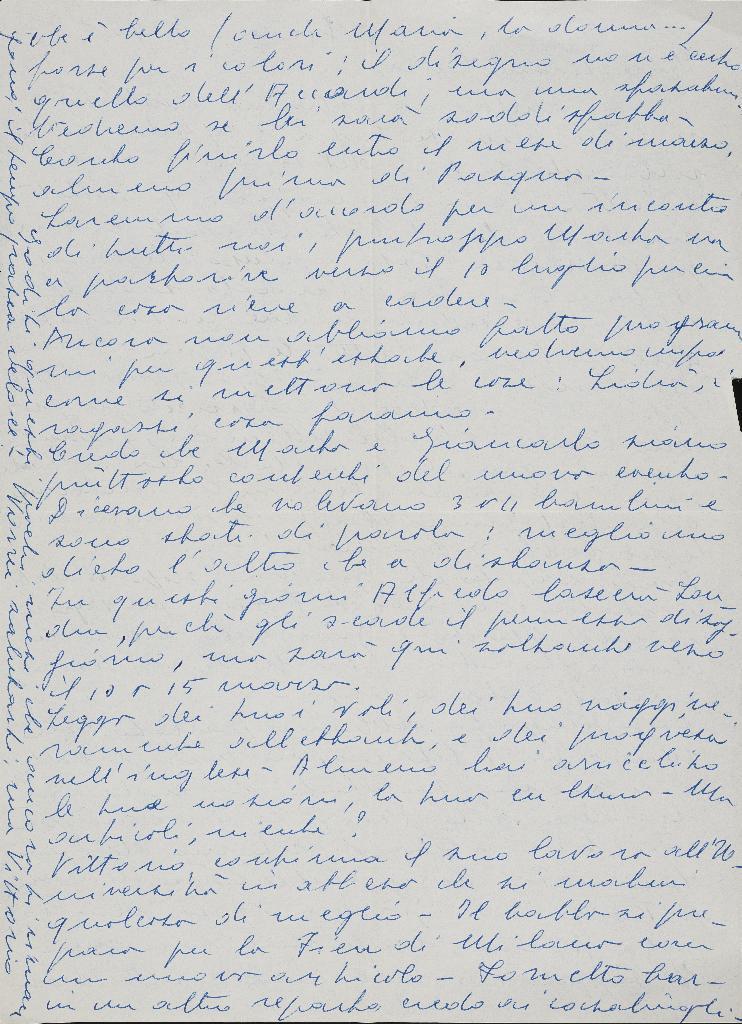 che è bello (anch. Maria, la donna...)
forse per i colori; il disegno non è certo
quello dell'Accardi, ma una
Vedremo se lei sarà soddisfatta -
Conto finirlo entro il mese di marzo,
almeno prima di Pasqua -
Saremmo d'accordo per un incontro
di tutti noi, purtroppo Marta va
a partorire verso il 10 luglio per cui
la cosa viene a cadere -
Ancora non abbiamo fatto program
mi per quest'estate, vedremo
come si mettono le cose: Lidia, i
ragazzi, cosa faranno -
Credo che Marta e Giancarlo siano
piuttosto contenti del nuovo evento -
Dicevano che volevano 3 o 4 bambini e
sono stati di parola: meglio uno
dietro l'altro che a distanza -
In questi giorni Alfredo lascerà Lon
dra, perché gli scade il permesso di sog
giorno, ma sarà qui soltanto verso
il 10 o 15 marzo.
Leggo dei tuoi voli, dei tuoi viaggi, ve
ramente allettanti, e dei progressi
nell'inglese - Almeno hai arricchito
le tue nozioni, la tua cultura - Ma
articoli, niente?
Vittorio continua il suo lavoro all'U-
niversità in attesa che si maturi
qualcosa di meglio - Il babbo si pre-
para per la Fiera di Milano con
un nuovo articolo - Lo metto
in un altro reparto credo ai casalinghi -
Goditi questi pochi mesi che ancora ti riman
gono, il tempo passa veloce - Vorrei salutarti, ma Vittorio